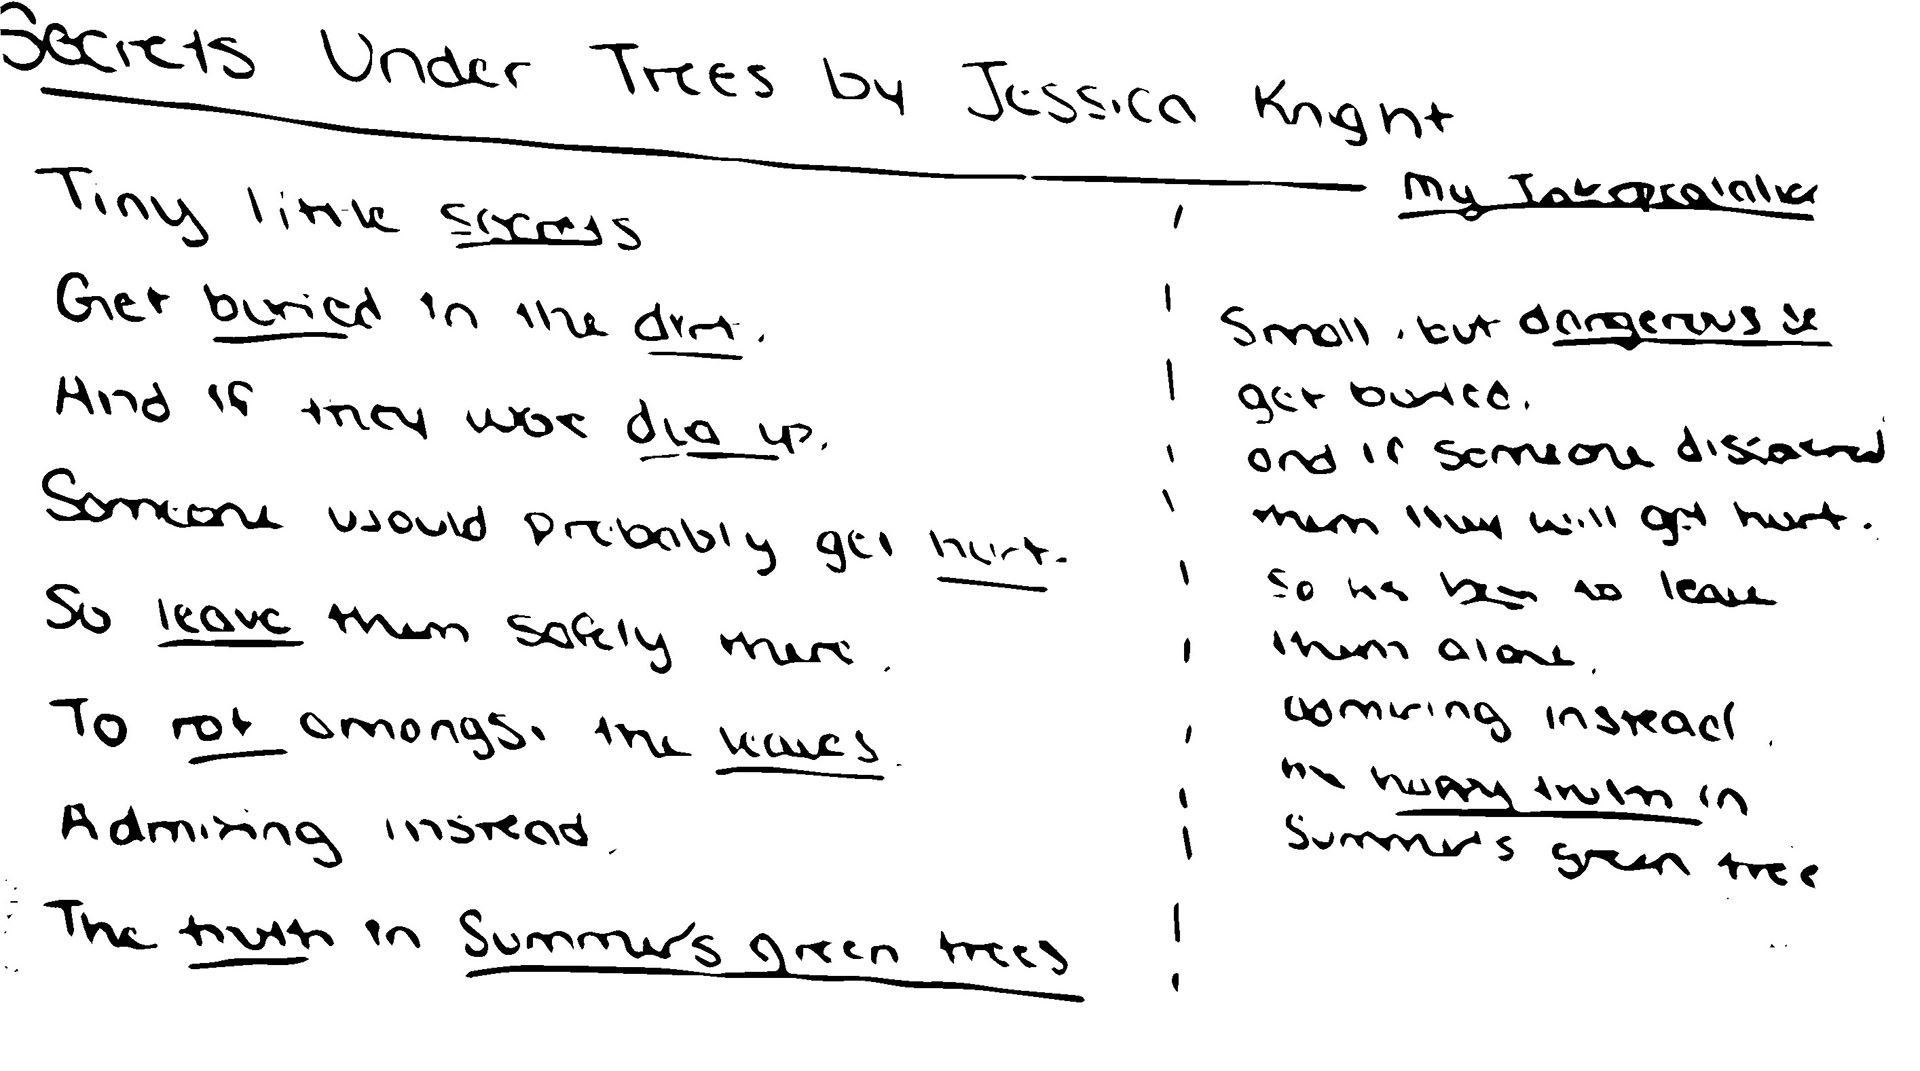 Secrets Under Trees by Jessica Knight
My Interpretation
Tiny little secrets
Get buried in the dirt.
And if they were dug up.
Someone would probably get hurt.
So leave them safely there.
To rot amongst the leaves.
Admiring instead.
The truth in Summer's green trees
Small, but dangerous
get buried.
and if someone discovered
them they will get hurt.
So its best to leave
them alone.
admiring instead.
the happy truth in
Summer's green tree